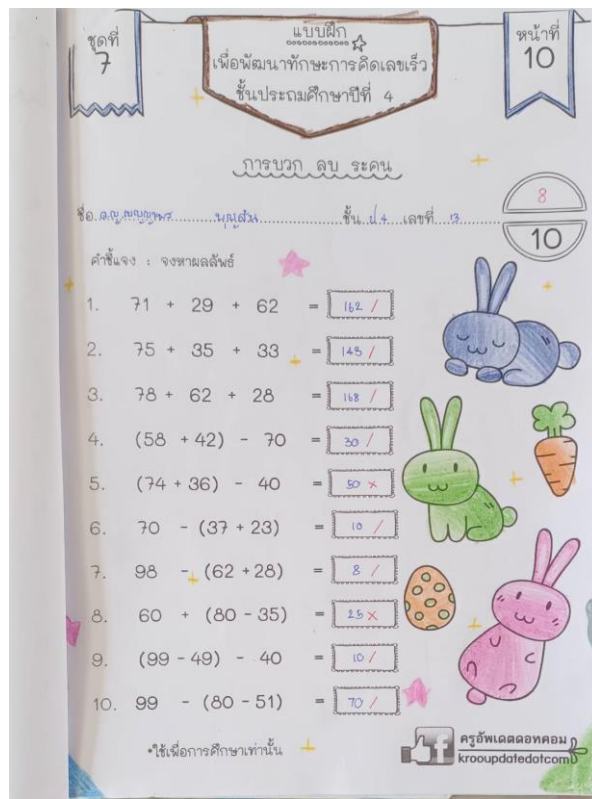 ชุดที่
7
แบบฝึก
เพื่อพัฒนาทักษะการคิดเลขเร็ว
ชั้นประถมศึกษาปีที่ 4
หน้าที่
10
การบวก ลบ ระคน
8
10
ชื่อ ด.ญ. บุญส่วน ชั้น ป.4 เลขที่ 13
คำชี้แจง : จงหาผลลัพธ์
1. 71 + 29 + 62 = 162 /
2. 75 + 35 + 33 = 143 /
3. 78 + 62 + 28 = 168 /
4. (58 + 42) - 70 = 30 /
5. (74 + 36) - 40 = 50 ×
6. 70 - (37 + 23) = 10 /
7. 98 - (62 + 28) = 8 /
8. 60 + (80 - 35) = 25 ×
9. (99 - 49) - 40 = 10 /
10. 99 - (80 - 51) = 70 /
•ใช้เพื่อการศึกษาเท่านั้น
ครูอัพเดตดอทคอม
krooupdatedotcom